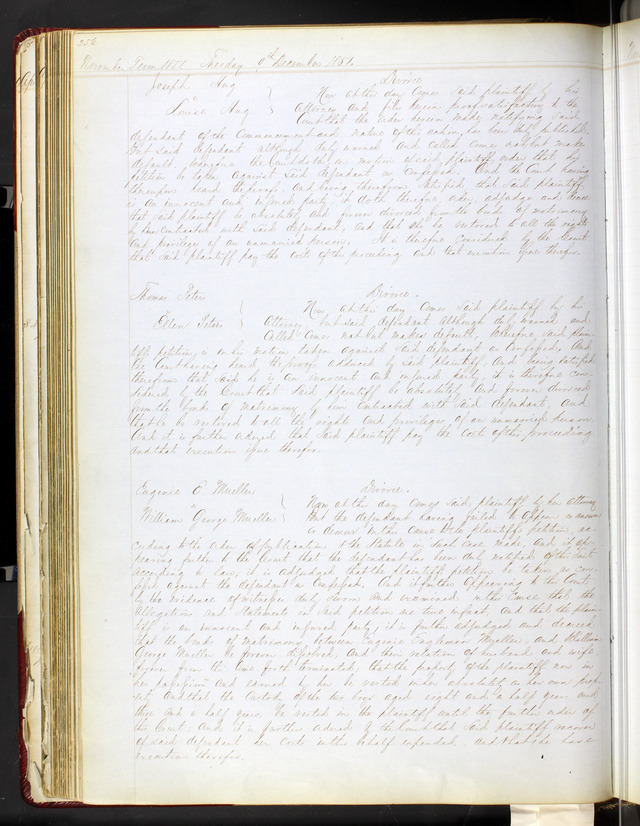 256
November Term 1881 Tuesday December 1881
Joseph Aug } Divorce
Now at this day comes said plaintiff by his
Louisa Aug } Attorney and files herein proof satisfactory to the
Court that the order herein made notifying said
defendant of the Commencement and nature of this action, has been duly published.
But said defendant although duly warned and called comes not but makes
default wherefore the Court doth on motion of said plaintiff order that his
petition be taken against said defendant as confessed. And the Court having
thereupon heard the proof and being therefrom satisfied that said plaintiff
is an innocent and injured party, it doth therefore order, adjudge and decree
that said plaintiff be absolutely and forever divorced from the bonds of matrimony
by him contracted with said defendant, and that he be restored to all the rights
and privileges of an unmarried person. It is therefore considered by the Court
that said plaintiff pay the costs of this proceeding and that execution issue therefor.
Thomas Peters } Divorce.
Now at this day comes said plaintiff by his
Ellen Peters } Attorney, but said defendant although duly warned and
called comes not but makes default, wherefore said plain-
tiffs petition is on his motion taken against said defendant as confessed. And
the Court having heard the proofs adduced by said plaintiff, and being satisfied
therefrom that said he is an innocent and injured party, it is therefore con-
sidered by the Court that said plaintiff be absolutely and forever divorced
from the bonds of matrimony by him contracted with said defendant, and
that he be restored to all the rights and privileges of an unmarried person.
And it is further ordered that said plaintiff pay the costs of this proceeding
and that execution issue therefor.
Eugenie E Mueller } Divorce.
v Now at this day comes said plaintiff by her attorney
William George Mueller } And the defendant having failed to appear answer
or demur in this cause to the plaintiffs petition, ac-
cording to the order of publication and the Statute in such case made and it ap-
pearing further to the Court that the defendant has been duly notified of this suit
according to law, it is adjudged that the plaintiffs petition be taken as con-
fessed against the defendant as confessed. And it further appearing to the Court
by the evidence of witnesses duly sworn and examined in the Cause that the
allegations and statements in said petition are true in fact, and that the plain-
tiff is an innocent and injured party, it is further adjudged and decreed
that the bonds of matrimony between Eugenie Mueller and William
George Mueller be forever dissolved, and their relation of husband and wife
from this time forth terminated, that the property of the plaintiff now in
her possession and earned by her be vested in her absolutely as her own prop-
erty and that the custody of the two boys aged eight and a half years and
three and a half years be vested in the plaintiff until the further order of
this Court; and it is further ordered by the Court that said plaintiff recover
of said defendant her costs in this behalf expended, and that she have
execution therefor.